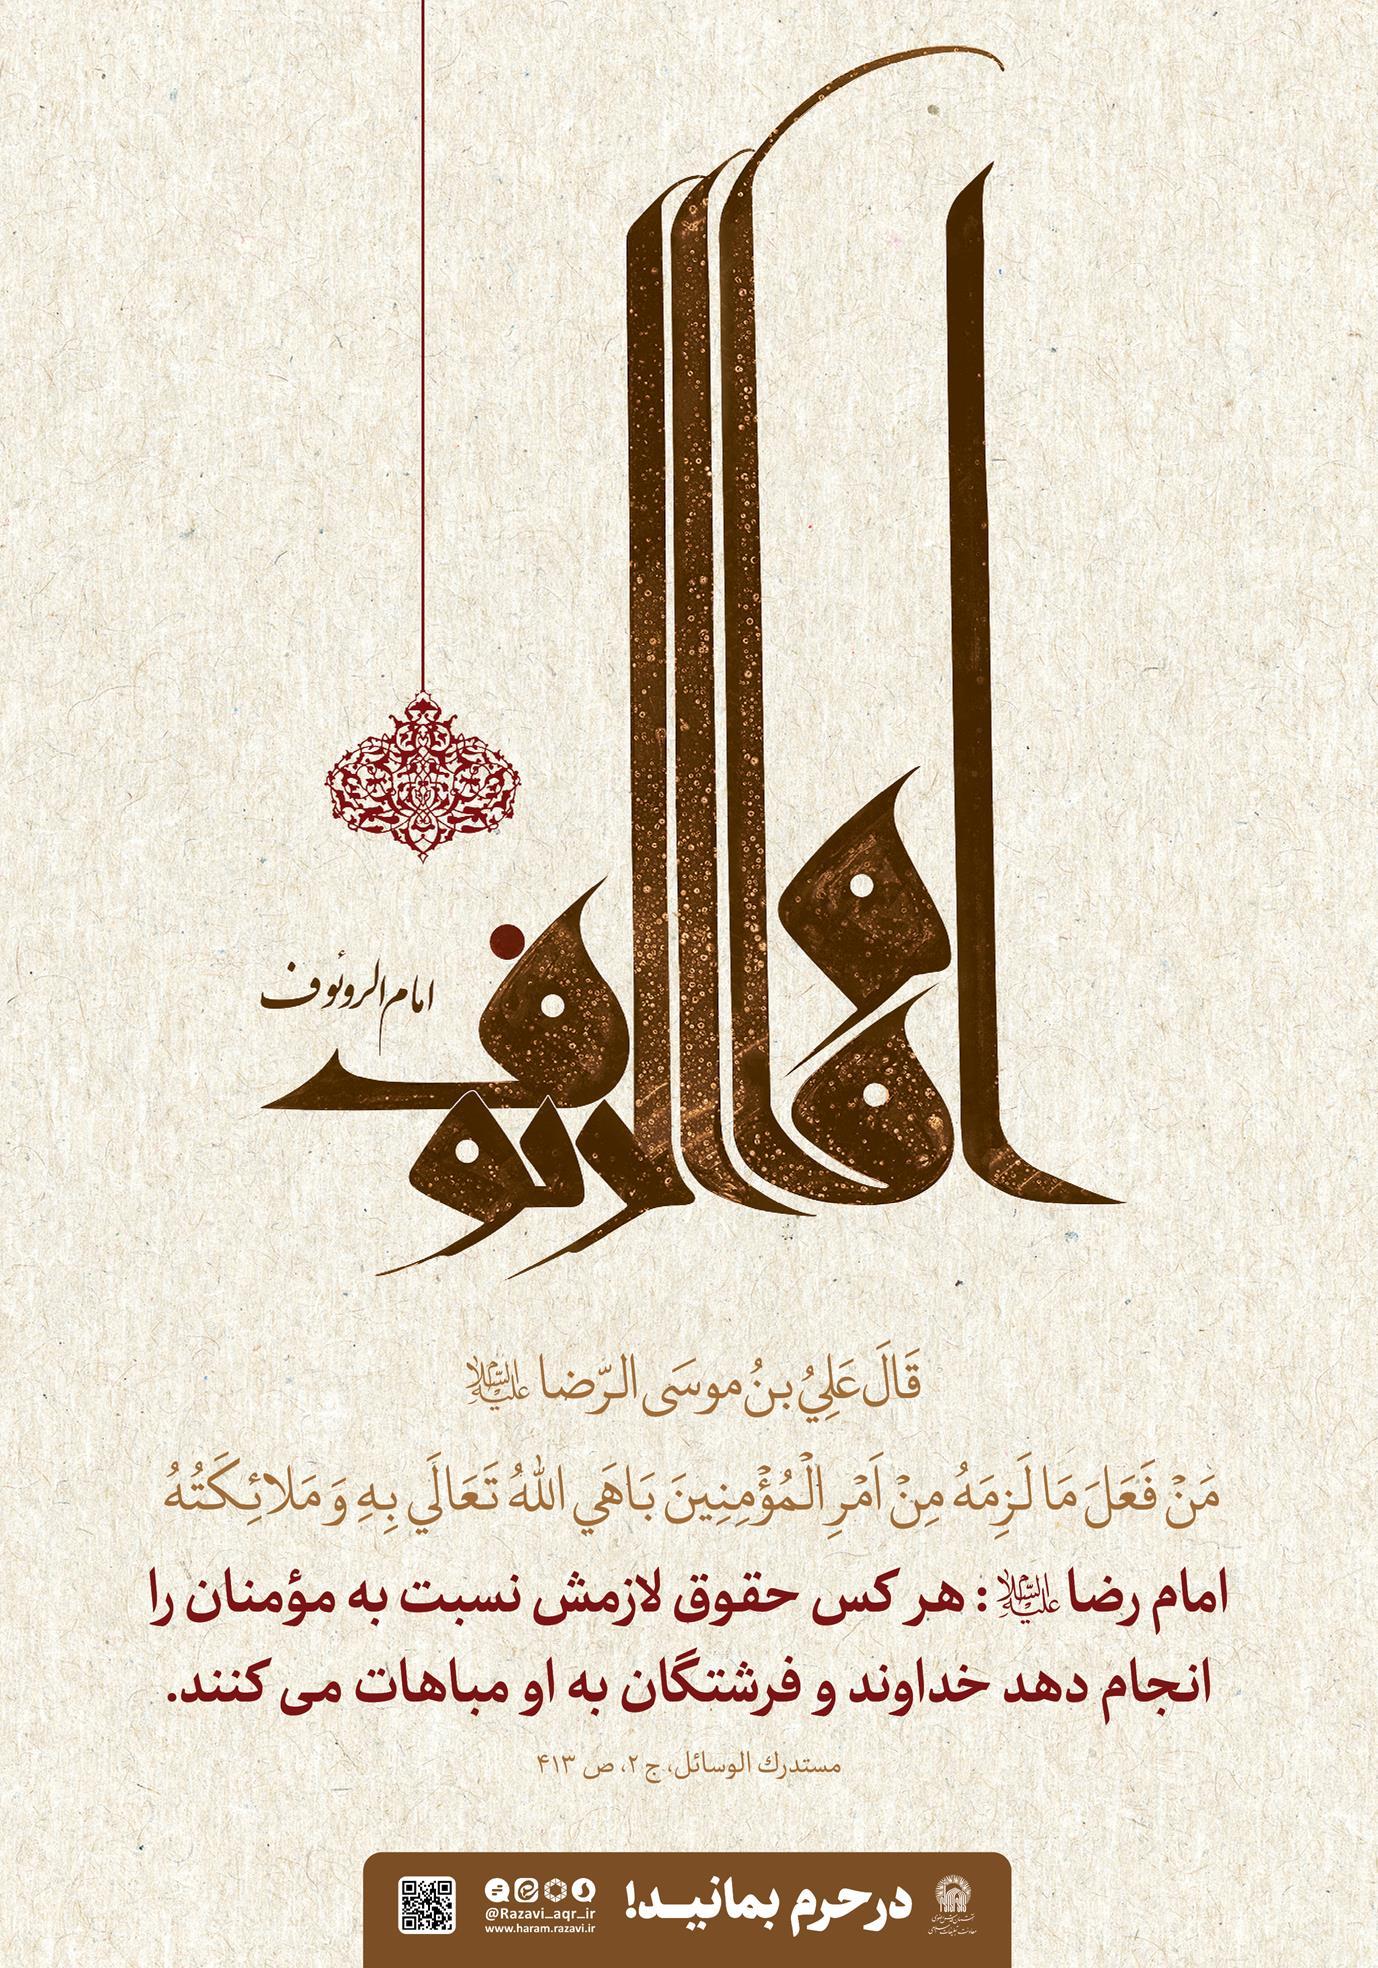 امام الرئوف
امام الروئوف
قَالَ عَلِيُ بنُ موسَى الرّضا علیه السلام
مَنْ فَعَلَ مَا لَزِمَهُ مِنْ اَمْرِ الْمُؤْمِنِينَ بَاهَي اللهُ تَعَالَي بِهِ وَ مَلائِكَتُهُ
امام رضا علیه السلام : هر کس حقوق لازمش نسبت به مؤمنان را
انجام دهد خداوند و فرشتگان به او مباهات می کنند.
مستدرك الوسائل، ج ۲، ص ۴۱۳
درحرم بمانید!
@Razavi_aqr_ir
www.haram.razavi.ir